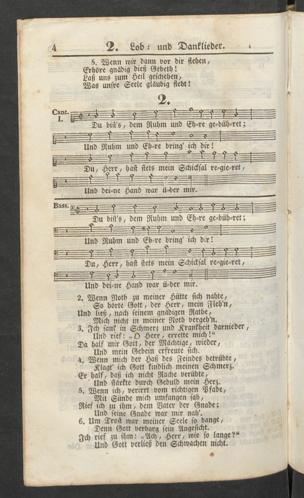 4 2. Lob- und Danklieder.
5. Wenn wir dann vor dir stehen,
Erhöre gnädig dieß Gebeth!
Laß uns zum Heil geschehen,
Was unsre Seele gläubig fleht!
2.
Cant. I.
Du bist's, dem Ruhm und Eh-re ge-büh-ret;
Und Ruhm und Eh-re bring' ich dir!
Du, Herr, hast stets mein Schicksal re-gie-ret,
Und dei-ne Hand war ü-ber mir.
Bass.
Du bist's, dem Ruhm und Eh-re ge-büh-ret;
Und Ruhm und Eh-re bring' ich dir!
Du, Herr, hast stets mein Schicksal re-gie-ret,
Und dei-ne Hand war ü-ber mir.
2. Wenn Noth zu meiner Hütte sich nahte,
So hörte Gott, der Herr, mein Fleh'n,
Und ließ, nach seinem gnädigen Rathe,
Mich nicht in meiner Noth vergeh'n.
3. Ich sank in Schmerz und Krankheit darnieder,
Und rief: "O Herr, errette mich!"
Da half mir Gott, der Mächtige, wieder,
Und mein Gebein erfreute sich.
4. Wenn mich der Haß des Feindes betrübte,
Klagt' ich Gott kindlich meinen Schmerz.
Er half, daß ich nicht Rache verübte,
Und stärkte durch Geduld mein Herz.
5. Wenn ich, verirrt vom richtigen Pfade,
Mit Sünde mich umfangen sah,
Rief ich zu ihm, dem Vater der Gnade;
Und seine Gnade war mir nah'.
6. Um Trost war meiner Seele so bange,
Denn Gott verbarg sein Angesicht.
Ich rief zu ihm: "Ach, Herr, wie so lange?"
Und Gott verließ den Schwachen nicht.